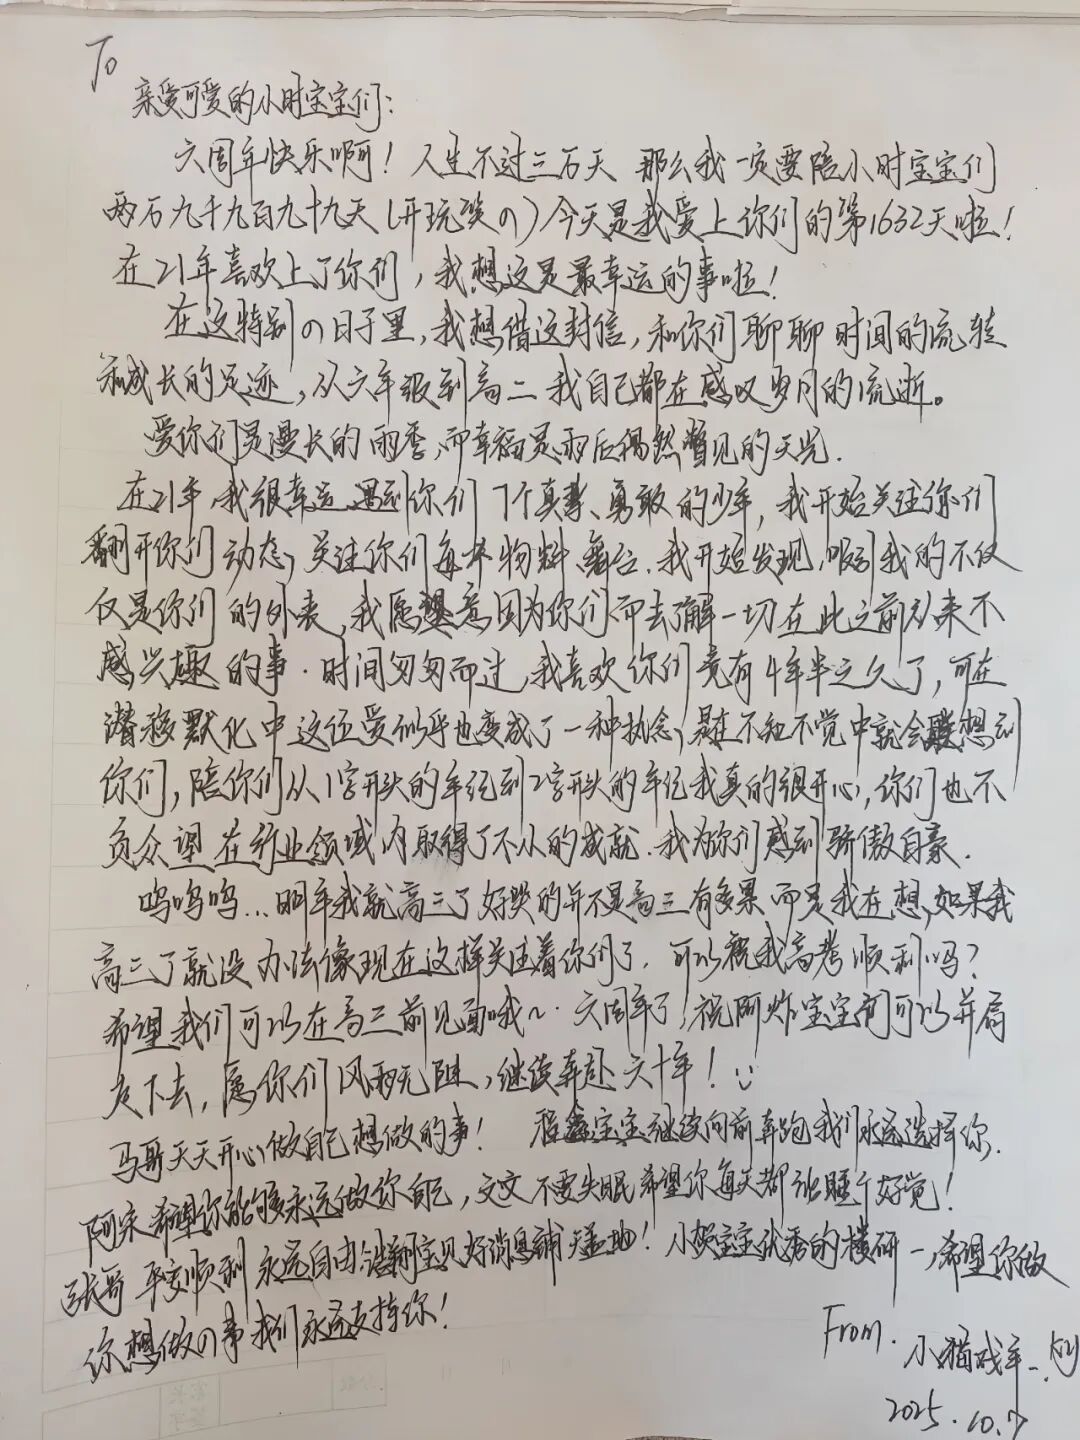 To
亲爱可爱的小时宝宝们：
六周年快乐啊！人生不过三万天 那么我一定要陪小时宝宝们
两万九千九百九十九天(开玩笑の)今天是我爱上你们的第1632天啦！
在21年喜欢上了你们，我想这是最幸运的事啦！
在这特别の日子里，我想借这封信，和你们聊聊时间的流转
和成长的足迹，从六年级到高二 我自己都在感叹岁月的流逝。
爱你们是漫长的雨季，而幸福是雨后偶然瞥见的天光.
在21年，我很幸运遇到你们7个真挚、勇敢的少年，我开始关注你们
翻开你们动态，关注你们每个物料、舞台.我开始发现，吸引我的不仅
仅是你们的外表，我愿意因为你们而去了解一切在此之前从来不
感兴趣的事.时间匆匆而过，我喜欢你们竟有4年半之久了，可在
潜移默化中这份爱似乎也变成了一种执念，是在不知不觉中就会联想到
你们，陪你们从1字开头的年纪到2字开头的年纪我真的很开心，你们也不
负众望在行业领域内取得了不小的成就.我为你们感到骄傲自豪.
呜呜呜...明年我就高三了好哭的并不是高三有多累而是我在想，如果我
高三了就没办法像现在这样关注着你们了.可以祝我高考顺利吗？
希望我们可以在高三前见面哦～.六周年了，祝阿炸宝宝们可以并肩
走下去，愿你们风雨无阻，继续奔赴六十年！
马哥天天开心做自己想做的事！ 程鑫宝宝继续向前奔跑我们永远选择你.
阿宋希望你能够永远做你自己，文文不要失眠希望你每天都能睡个好觉！
张哥平安顺利永远自由，翔宝见好消息铺天盖地！小贺宝宝优秀的模研一，希望你做
你想做の事我们永远支持你！
From.
小猫戒年-.
2025.10.7